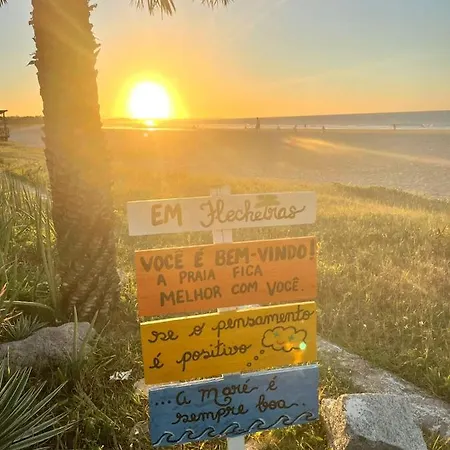 EM Flecheiras
VOCÊ É BEM-VINDO!
A PRAIA FICA
MELHOR COM VOCÊ.
se o pensamento
é positivo
...a maré é
sempre boa